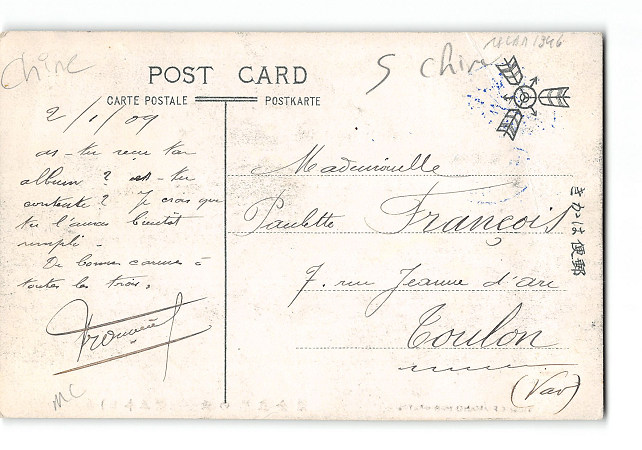 Chine
5 Chine
POST CARD
CARTE POSTALE
POSTKARTE
2/1/09
as-tu reçu ton
album ? es-tu
contente ? Je crois que
tu l'auras bientôt
rempli -
De bonnes caresses à
toutes les trois.
Mademoiselle
Paulette François
7. rue Jeanne d'arc
Toulon
(Var)
きかは便郵
MC